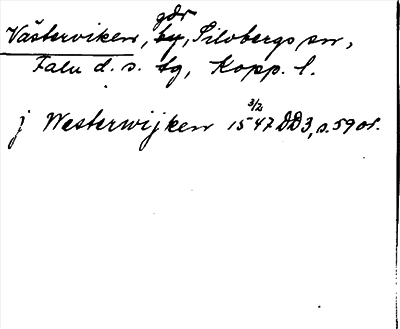 Västerviken, gdr by, Silvbergs sn,
Falu d. s. tg, Kopp. l.
j Westerwijken 15 3/2 47 DD3, s. 59 or.